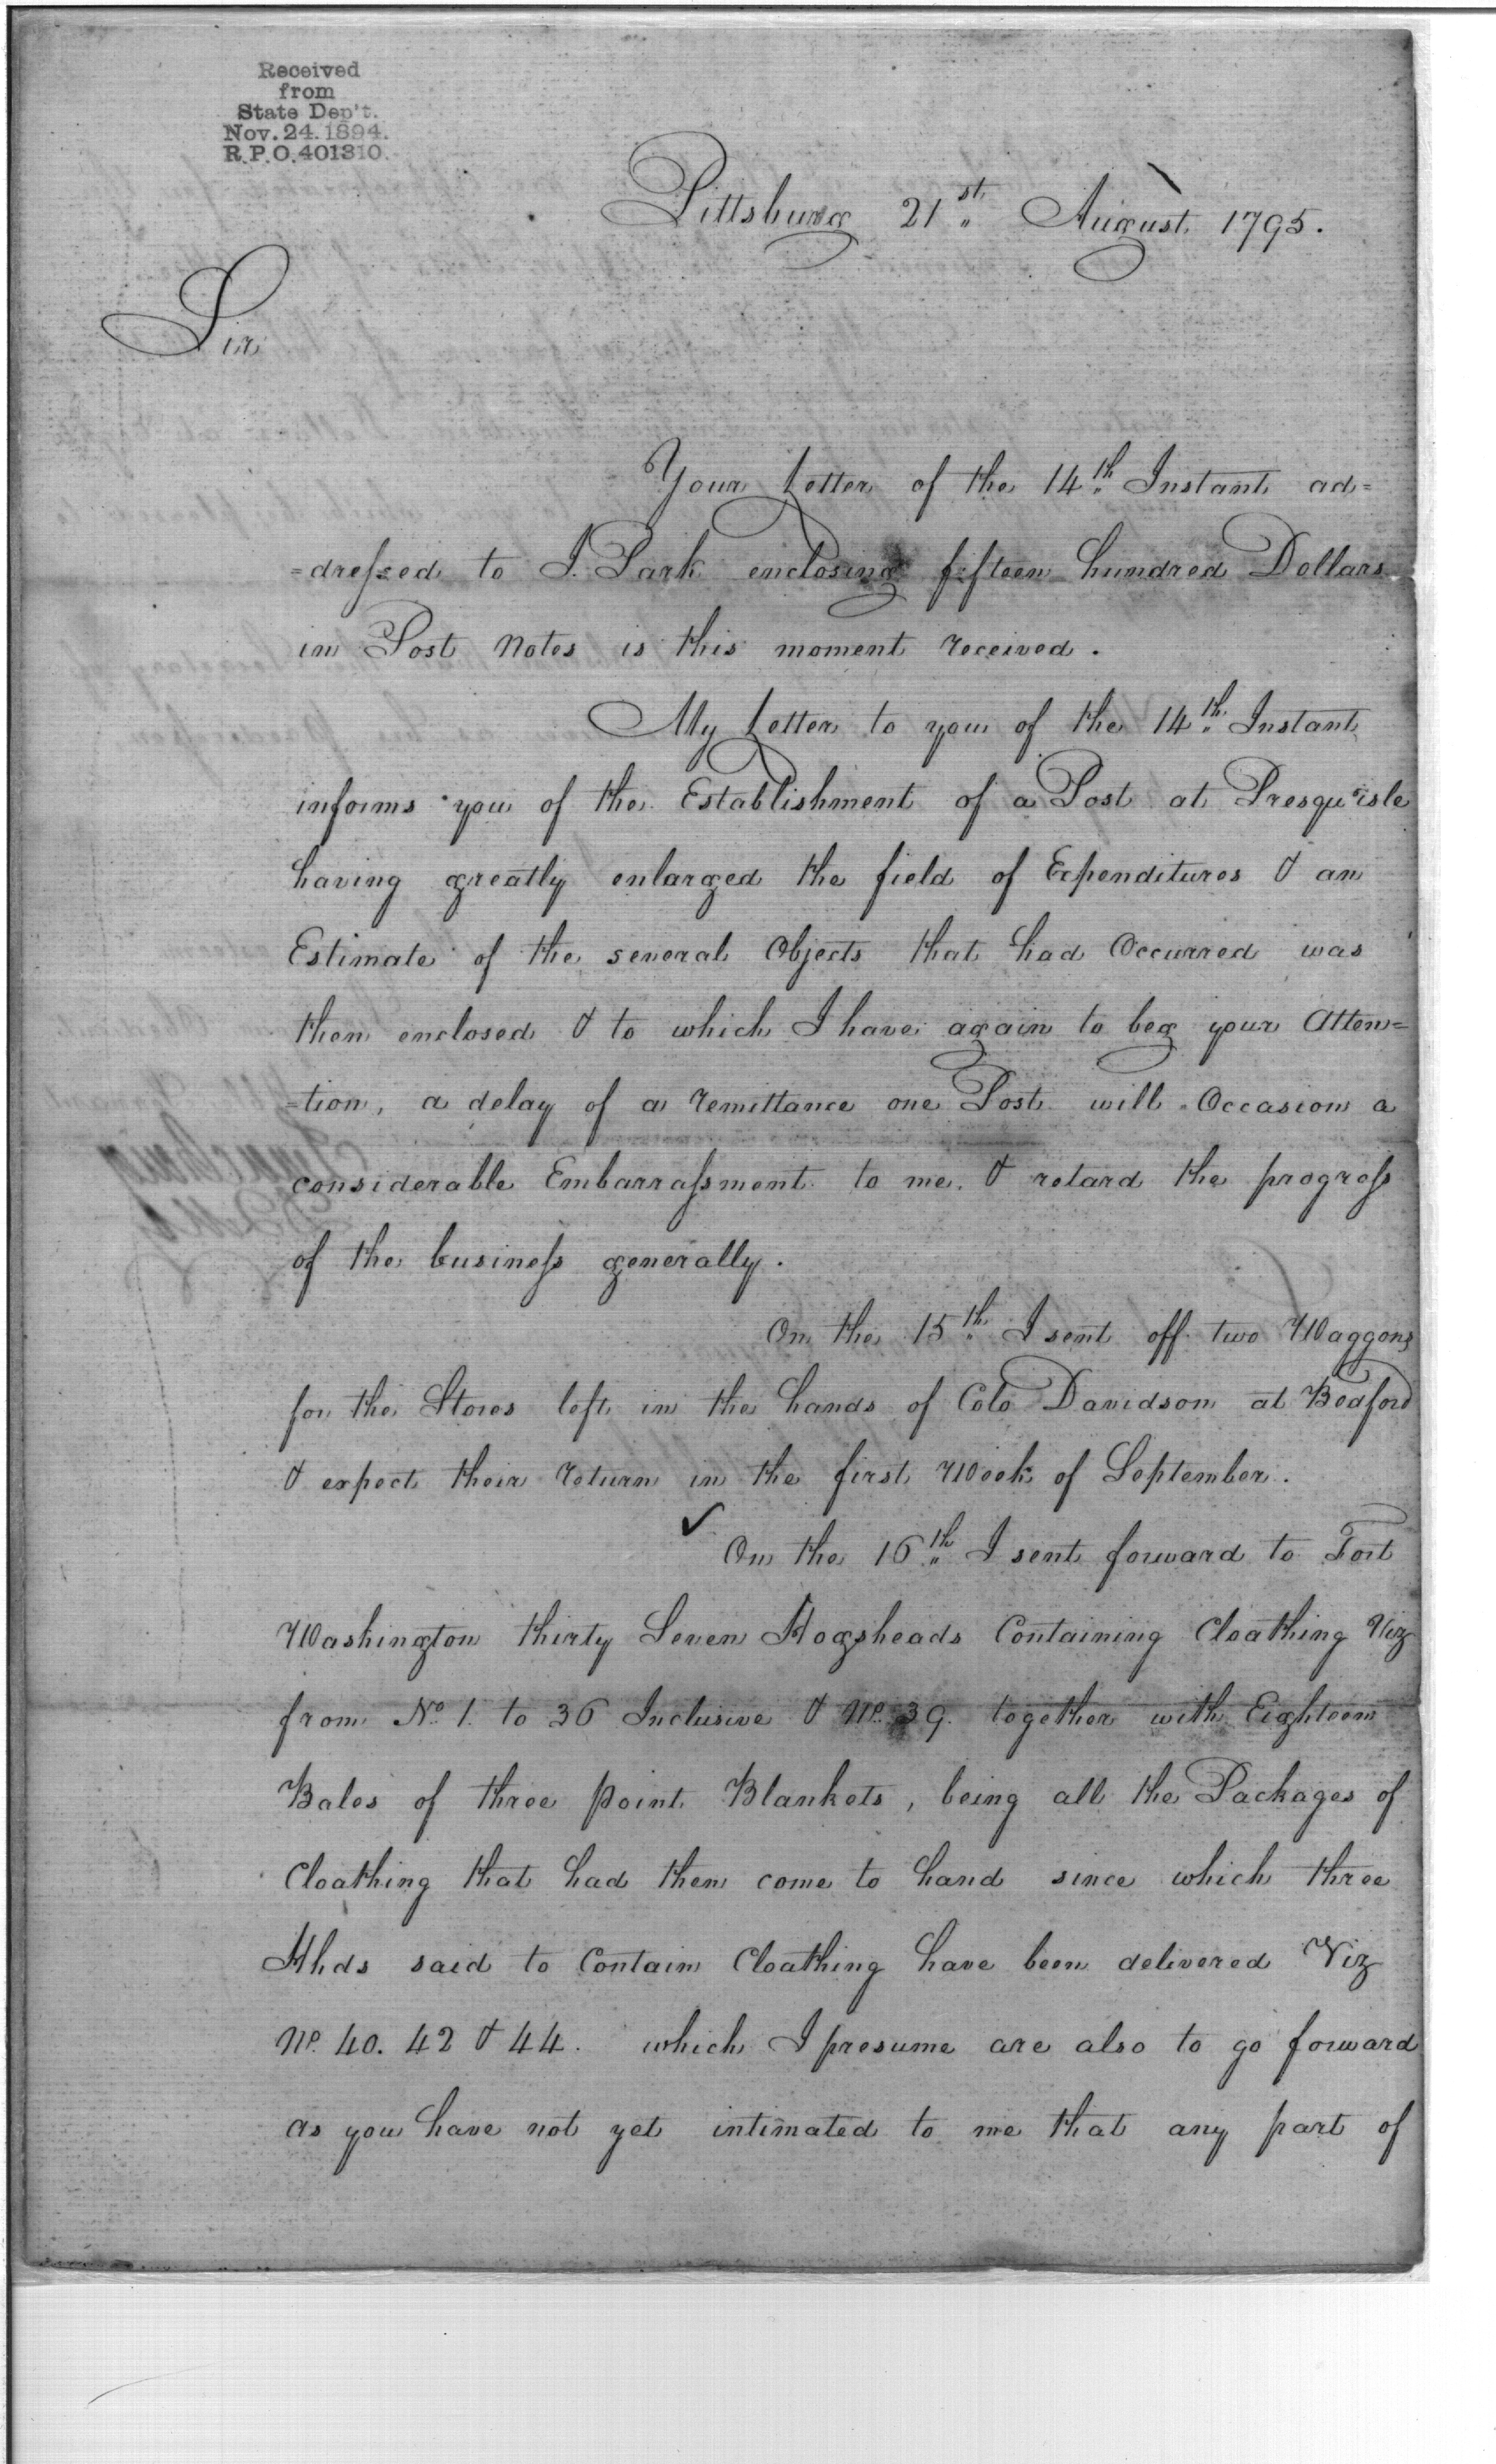 Received
from
State Dep't.
Nov. 24. 1894.
R.P.O. 401310.
Pittsburg 21st August 1795.
Sir
Your Letter of the 14th Instant ad=
=dressed to J. Park enclosing fifteen hundred Dollars
in Post notes is this moment received.
My Letter to you of the 14th Instant
informs you of the Establishment of a Post at Presqu'isle
having greatly enlarged the field of Expenditures & an
Estimate of the several Objects that had Occurred was
then enclosed & to which I have again to beg your Atten=
=tion, a delay of a remittance one Post will Occasion a
considerable Embarrassment to me. & retard the progress
of the business generally.
On the 15th I sent off two Waggons
for the Stores left in the hands of Colo Davidson at Bedford
& expect their return in the first Week of September.
✓ On the 16th I sent forward to Fort
Washington thirty Seven Hogsheads Containing Cloathing Viz
from No. 1. to 36 Inclusive & No. 39. together with Eighteen
Bales of three point Blankets, being all the Packages of
Cloathing that had then come to hand since which three
Hhds said to Contain Cloathing have been delivered Viz
No. 40. 42 & 44. which I presume are also to go forward
as you have not yet intimated to me that any part of